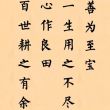 善为至宝
一生用之不尽
心作良田
百世耕之有余